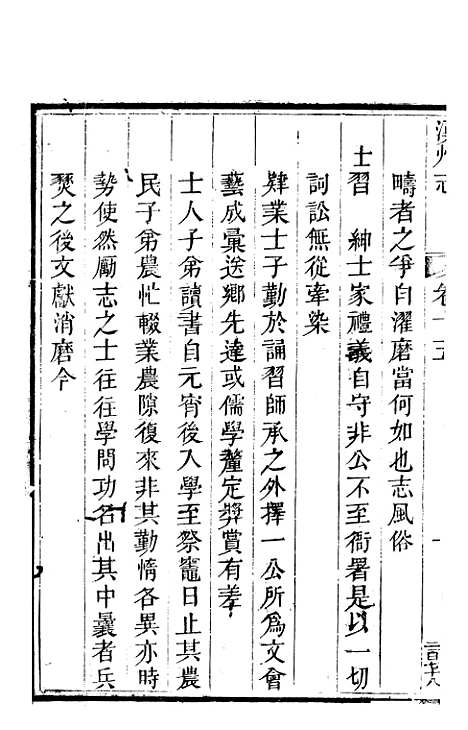 漢州志　卷十五
疇者之爭自濯磨當何如也志風俗
士習　紳士家禮義自守非公不至衙署是以一切
詞訟無從牽染
肄業士子勤於誦習師承之外擇一公所為文會
藝成彙送鄉先達或儒學釐定奬賞有差
士人子弟讀書自元宵後入學至祭竈日止其農
民子弟農忙輟業農隙復來非其勤惰各異亦時
勢使然勵志之士往往學問功名出其中曩者兵
燹之後文獻消磨今